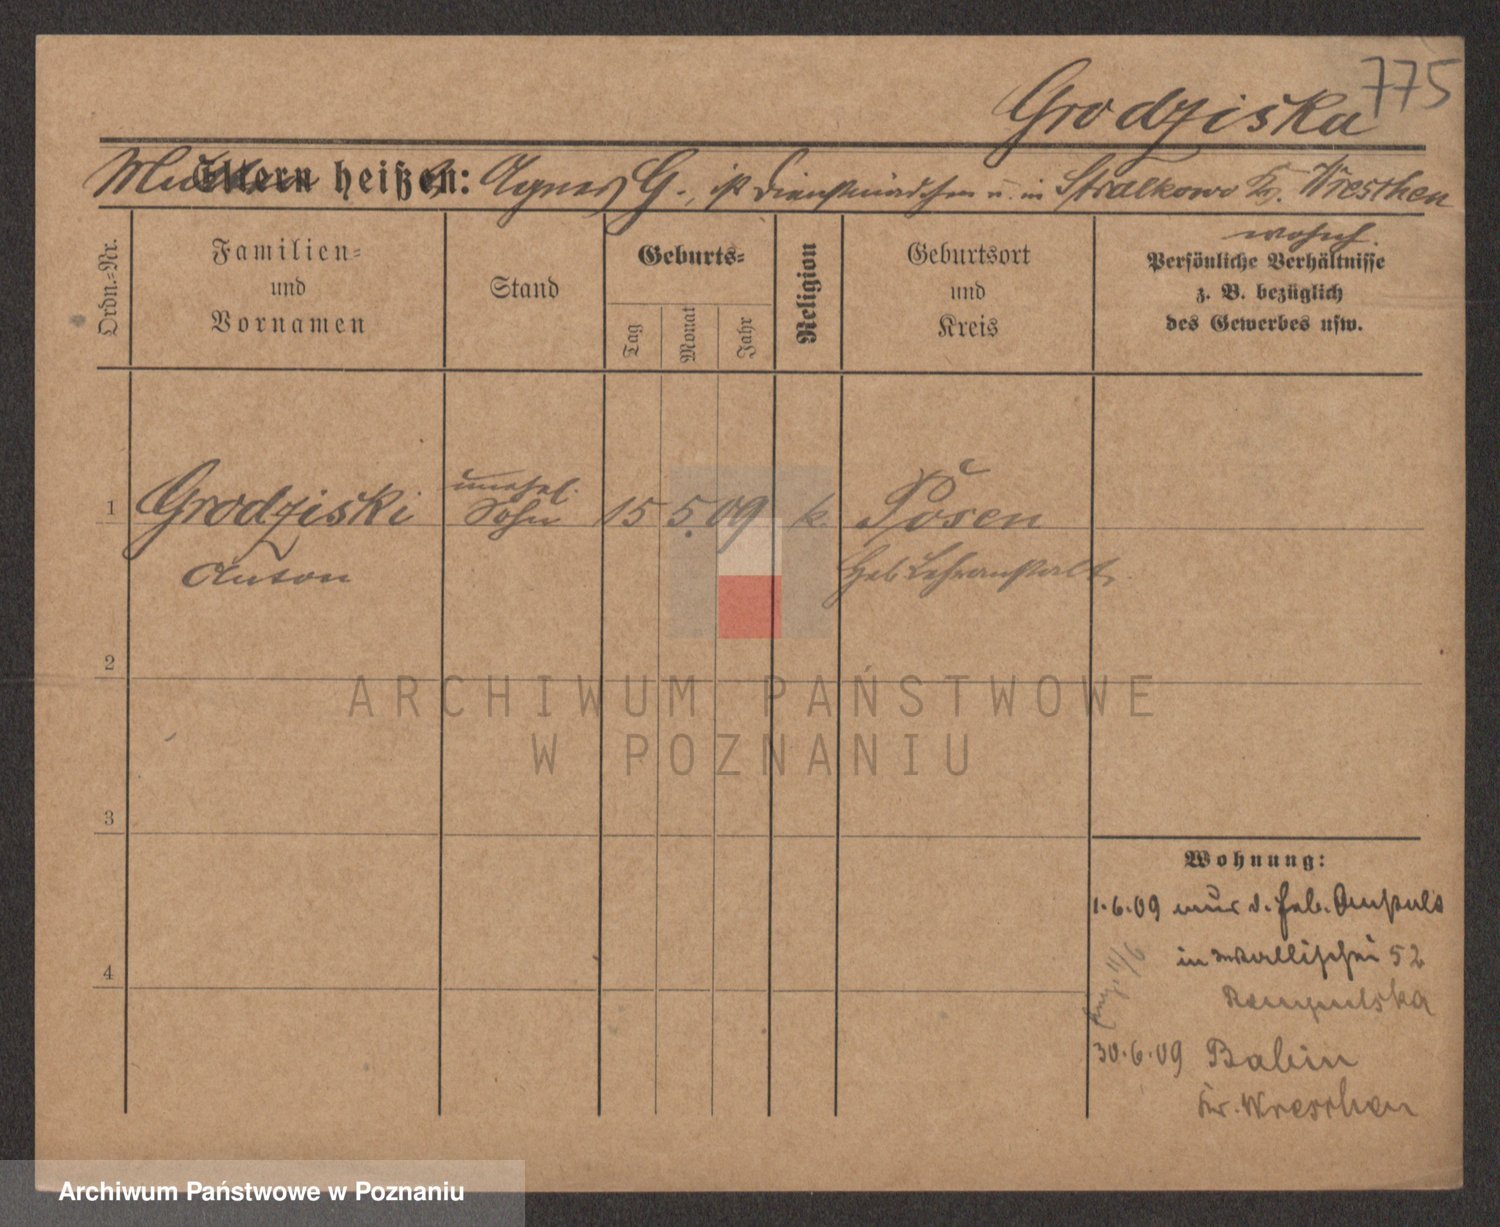 775
Grodziska
Mutter heißt: Agnes G., ist Dienstmädchen u. in Stralkowo Kr. Wreschen
wohnh.
Ordn.-Nr.
Familien-
und
Vornamen
Stand
Geburts-
Tag
Monat
Jahr
Religion
Geburtsort
und
Kreis
Persönliche Verhältnisse
z. B. bezüglich
des Gewerbes usw.
1 Grodziski unehel. Sohn 15 5. 09 k. Posen
Anton Heb. Lehranstalt
2
3
4
Wohnung:
1.6.09 aus d. Heb. Anstalt
in Wallischei 52
30.6.09 Babin
Kr. Wreschen
ARCHIWUM PAŃSTWOWE
W POZNANIU
Archiwum Państwowe w Poznaniu